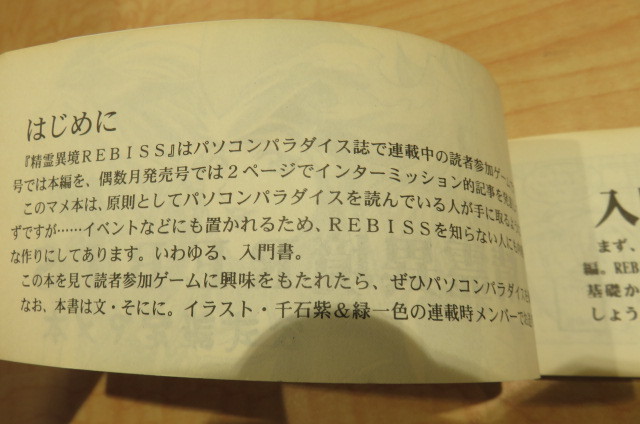 はじめに
『精霊異境REBISS』はパソコンパラダイス誌で連載中の読者参加ゲーム
号では本編を、偶数月発売号では２ページでインターミッション的記事を
このマメ本は、原則としてパソコンパラダイスを読んでいる人が手に取る
ずですが……イベントなどにも置かれるため、REBISSを知らない人にも
な作りにしてあります。いわゆる、入門書。
この本を見て読者参加ゲームに興味をもたれたら、ぜひパソコンパラダイス
なお、本書は文・そにに。イラスト・千石紫＆緑一色の連載時メンバーで
入
まず、
編。REB
基礎か
しょう